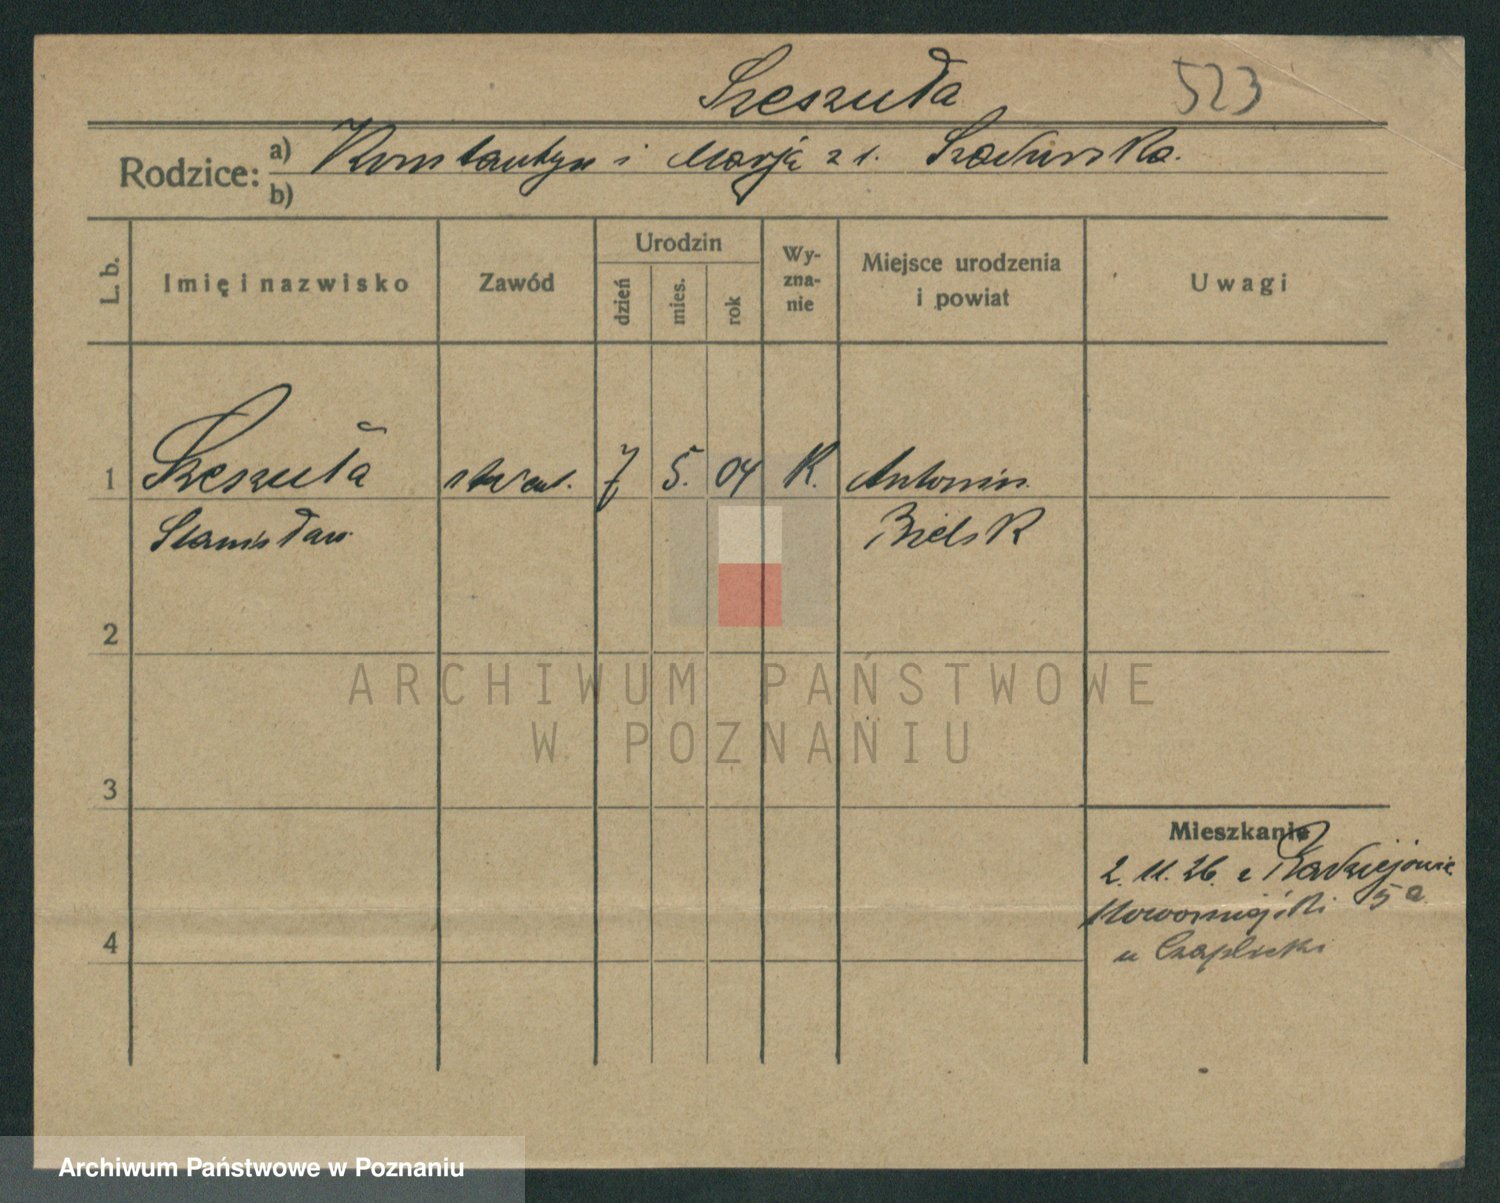 Szeszuła 523
Rodzice: a) Konstantyn i Marja z d.
b)
L. b. Imię i nazwisko Zawód Urodzin dzień mies. rok Wy-zna-nie Miejsce urodzenia i powiat Uwagi
1 Szeszuła 7 5. 04 K. Antonin
Stanisław Bielsk
2
ARCHIWUM PAŃSTWOWE
W POZNANIU
3
Mieszkanie
2. 11. 26. z Radziejowie
5a
4
u Czaplicki
Archiwum Państwowe w Poznaniu